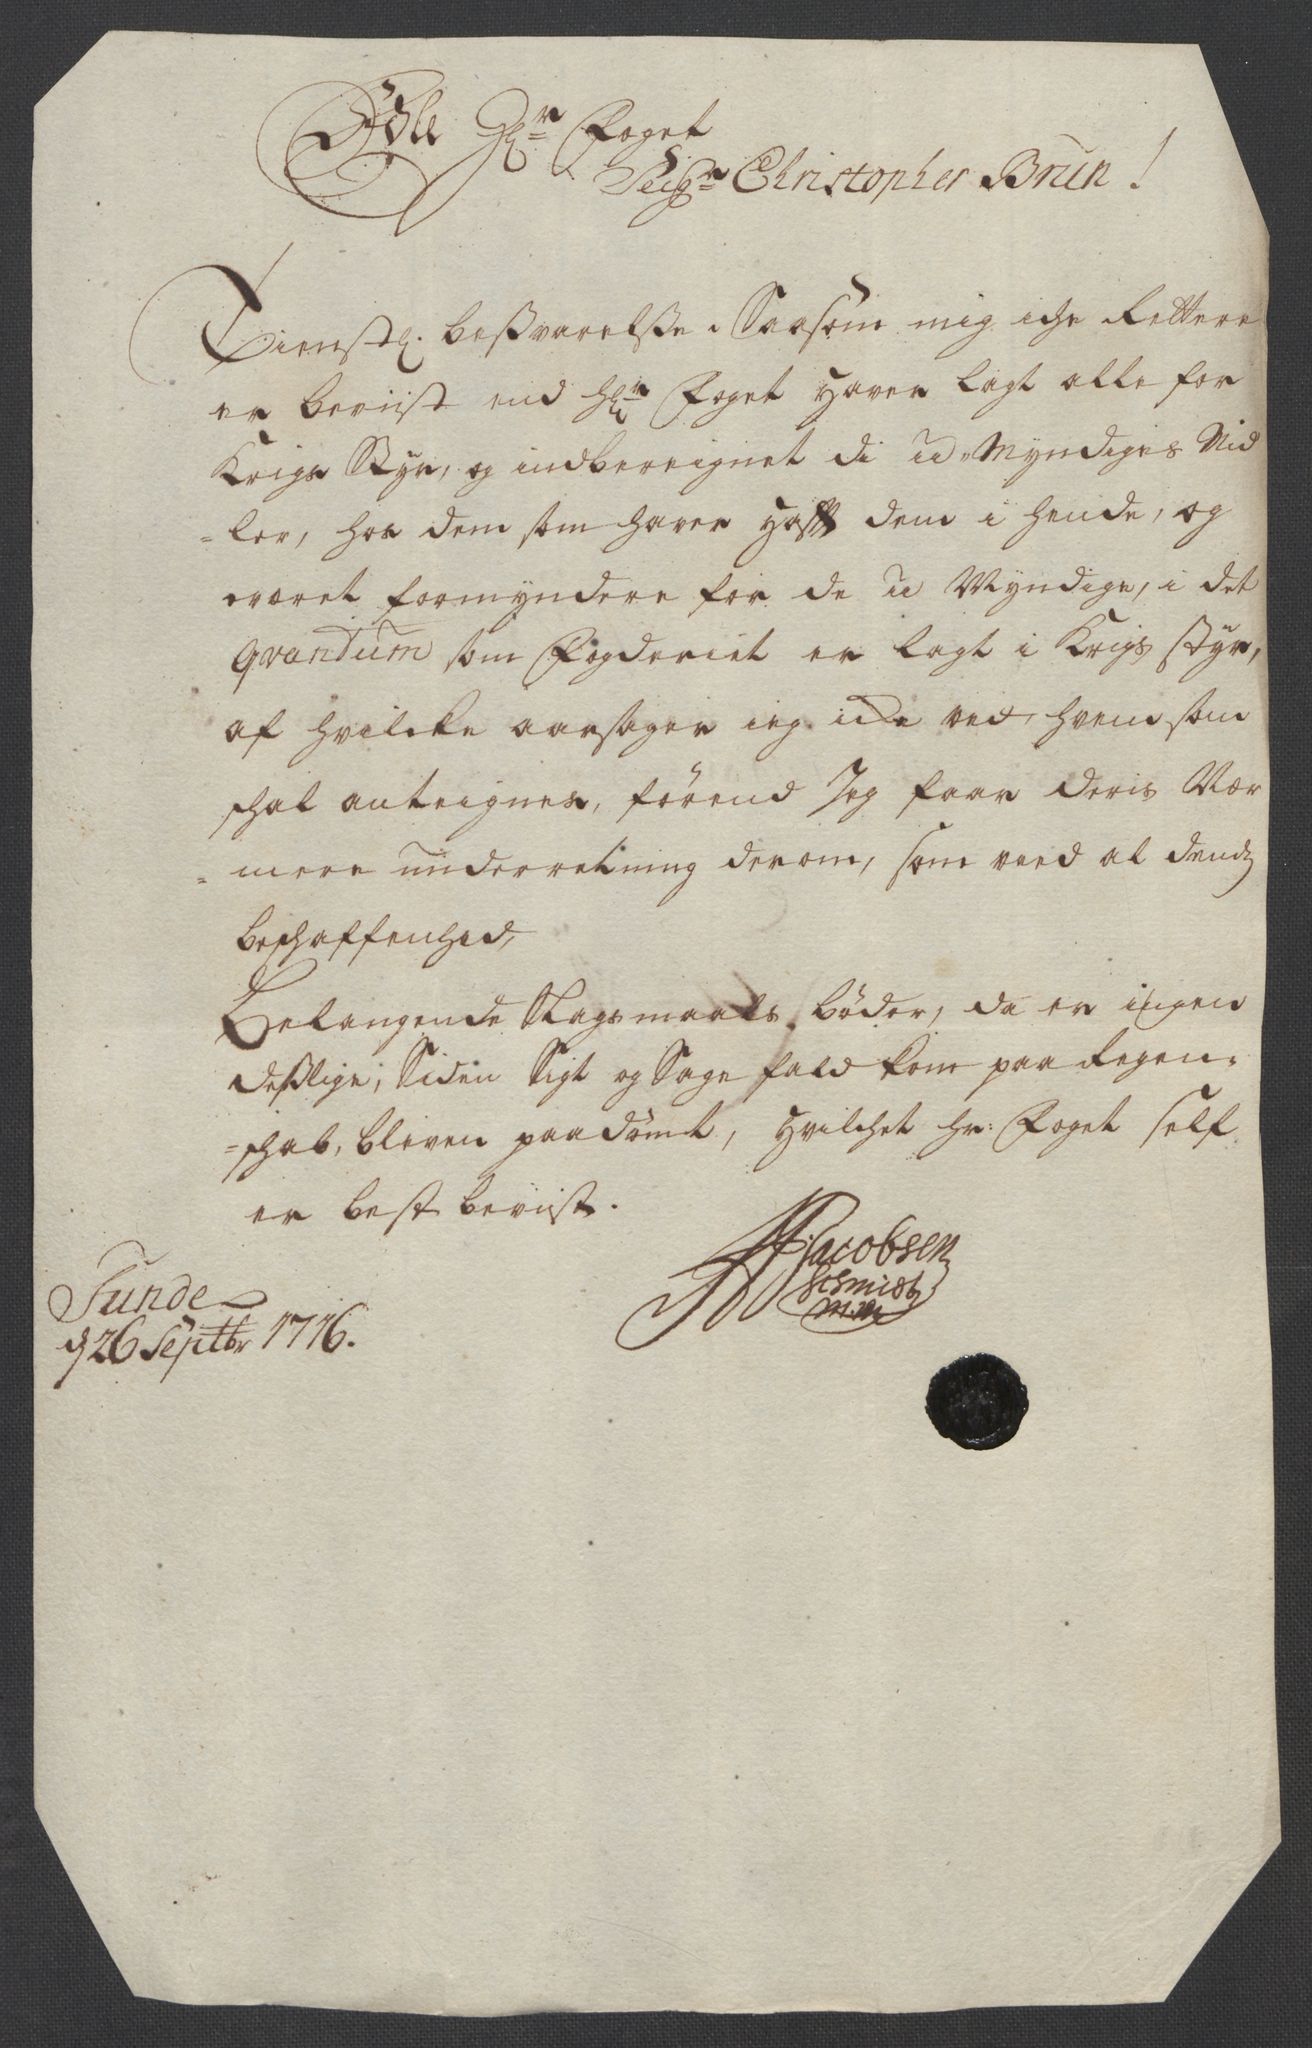 Edle Hr Foget
Seigr Christopher Brun!
Tienstl. besvarelse, Saasom mig iche Rettere
er beviist end Hr Foget haver lagt alle for
Krigs Styr, og indbereignet di u-Myndiges Mid
-ler, hos dem som haver hafft dem i hende, og
været formyndere for de u Myndige, i det
Qvantum som Fogderiet er lagt i Krigs styr,
af hvilcke aarsager ieg icke ved, hvem som
schal anteignes, førend Jeg faar deris Nær
-mere underretning derom, som veed al dends
beschaffenhed,
Belangende Slagsmaals bøder, da er ingen
desslige, Siden Sigt og Sage fald kom paa Regen-
-schab, bleven paadømt, hvilchet hr: Foget self
er best bevist.
Sunde
d 26 Septbr 1716.
Jacobsen
Schmidt